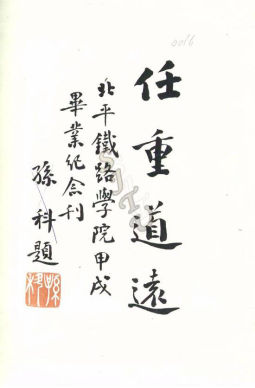 任重道遠
北平鐵路學院甲戌
畢業紀念刊
孫科題
0016